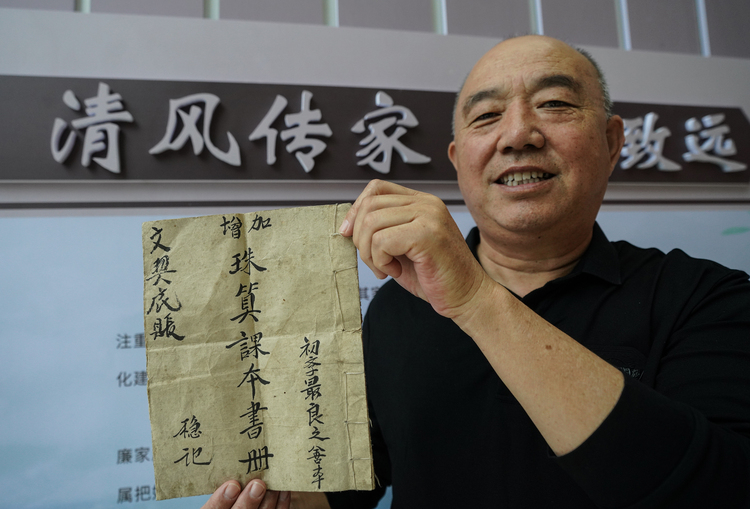 清风传家 致远
初斈最良之善本
增加
珠算課本書册
文契底賬
稳记
注重
化建
廉家
属把